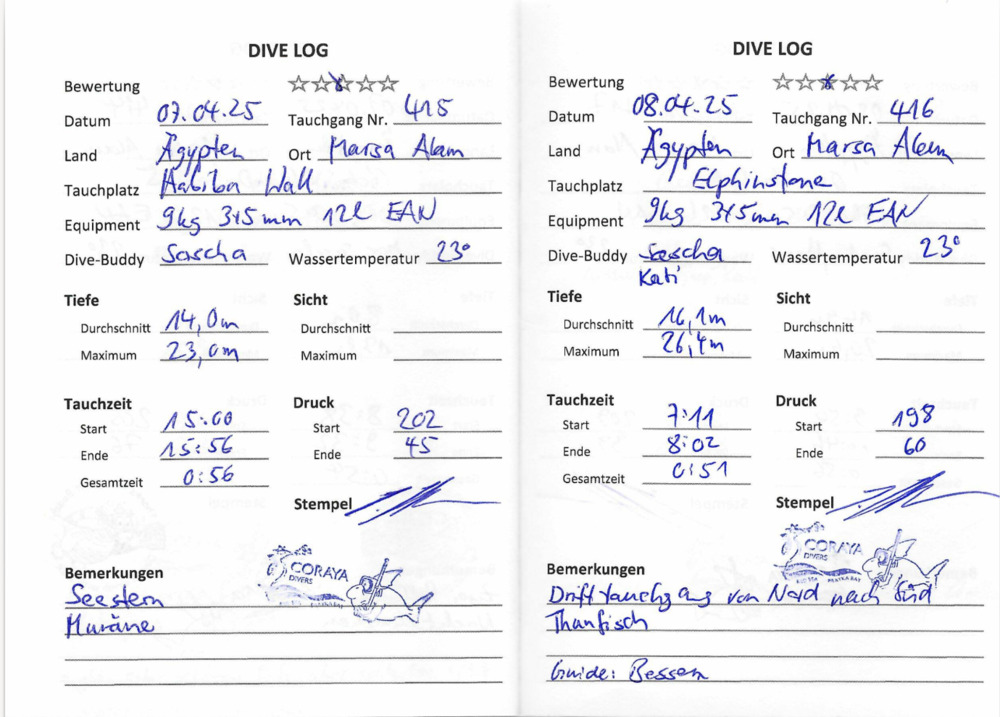 DIVE LOG
Bewertung ☆☆☆☆☆
Datum 07.04.25 Tauchgang Nr. 415
Land Ägypten Ort Marsa Alam
Tauchplatz Habiba Wall
Equipment 9kg 3+5mm 12l EAN
Dive-Buddy Sascha Wassertemperatur 23°
Tiefe Sicht
Durchschnitt 14,0m Durchschnitt
Maximum 23,0m Maximum
Tauchzeit Druck
Start 15:00 Start 202
Ende 15:56 Ende 45
Gesamtzeit 0:56
Stempel
CORAYA
DIVERS
Bemerkungen
Seestern
Muräne
DIVE LOG
Bewertung ☆☆☆☆☆
Datum 08.04.25 Tauchgang Nr. 416
Land Ägypten Ort Marsa Alam
Tauchplatz Elphinstone
Equipment 9kg 3+5mm 12l EAN
Dive-Buddy Sascha Wassertemperatur 23°
Kati
Tiefe Sicht
Durchschnitt 16,1m Durchschnitt
Maximum 26,4m Maximum
Tauchzeit Druck
Start 7:11 Start 198
Ende 8:02 Ende 60
Gesamtzeit 0:51
Stempel
CORAYA
DIVERS
Bemerkungen
Drifttauchgang von Nord nach Süd
Thunfisch
Guide: Bessem